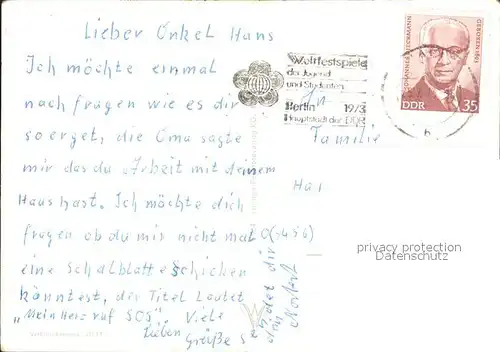 Lieber Onkel Hans
Ich möchte einmal
nach fragen wie es dir
so erget, die Oma sagte
mir das du Arbeit mit deinem
Haus hast. Ich möchte dich
fragen ob du mir nicht mal
eine Schalblatte schicken
känntest, der Titel Lautet
„Mein Herz ruf SOS" Viele
Lieben Grüße
Norbert
Weltfestspiele
der Jugend
und Studenten
Berlin 1973
Hauptstadt der DDR
JOHANNES DIECKMANN
GEBOREN 1893
DDR 35
Familie
privacy protection
Datenschutz